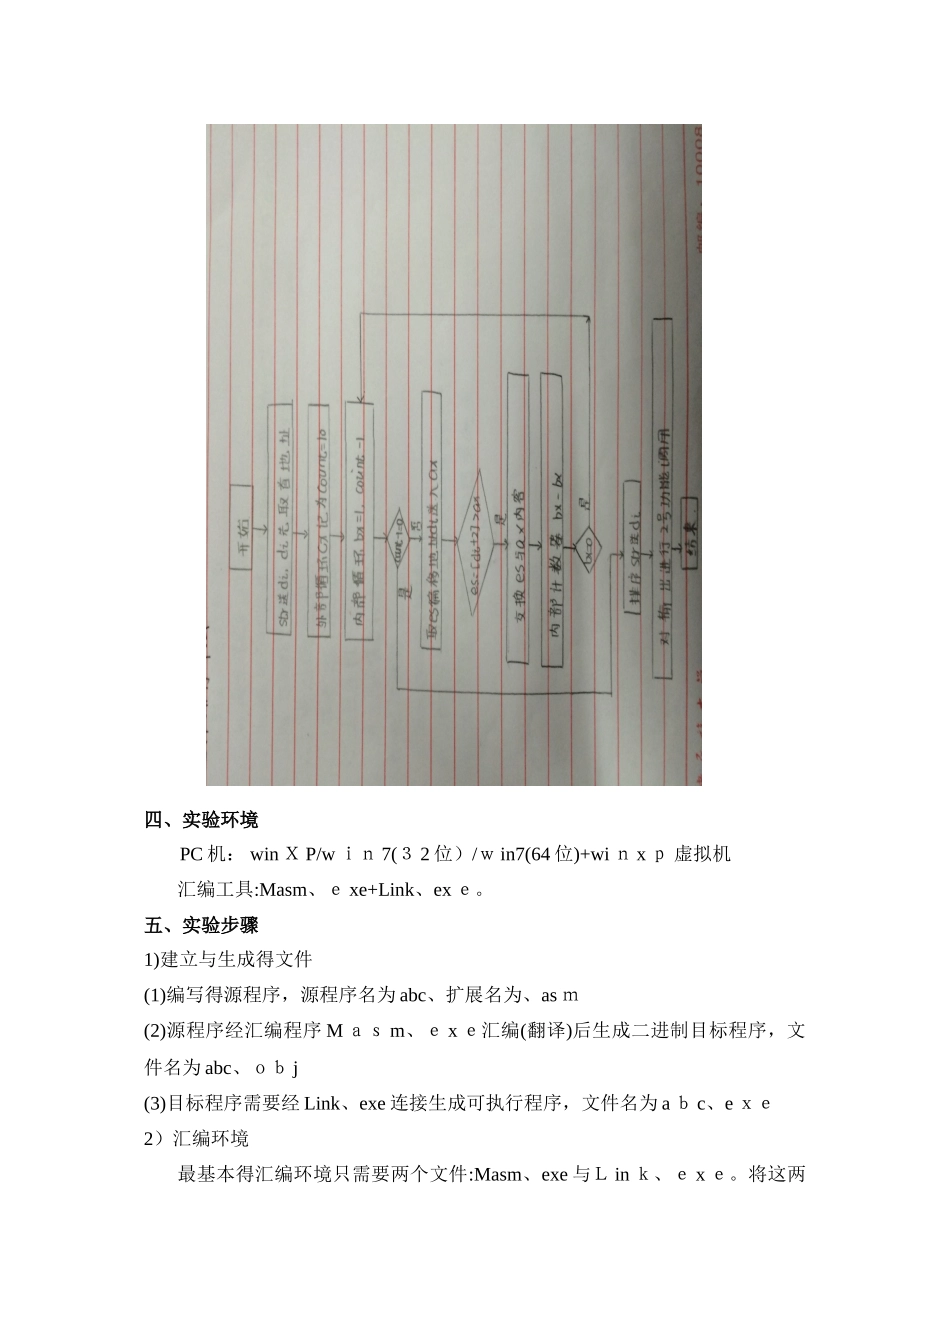 开始
str送di, di先取首地址
外部循环CX记为count=10
内部循环bx=1, count-1
count-1=0
是
否
取es偏移地址di送入ax
es:[di+2]>ax
是
交换es与ax内容
内部计数器bx-bx
bx=0
是
排序str送di
对输出进行2号功能调用
结束
四、实验环境
PC 机： win Ｘ P/w ｉｎ 7(３ 2 位）/ｗ in7(64 位)+wi ｎ x ｐ 虚拟机
汇编工具:Masm、ｅ xe+Link、ex ｅ。
五、实验步骤
1)建立与生成得文件
(1)编写得源程序，源程序名为 abc、扩展名为、as ｍ
(2)源程序经汇编程序 M ａｓ m、ｅ x ｅ汇编(翻译)后生成二进制目标程序，文
件名为 abc、ｏｂ j
(3)目标程序需要经 Link、exe 连接生成可执行程序，文件名为 a ｂ c、e ｘｅ
2）汇编环境
最基本得汇编环境只需要两个文件:Masm、exe 与Ｌ in ｋ、ｅ x ｅ。将这两